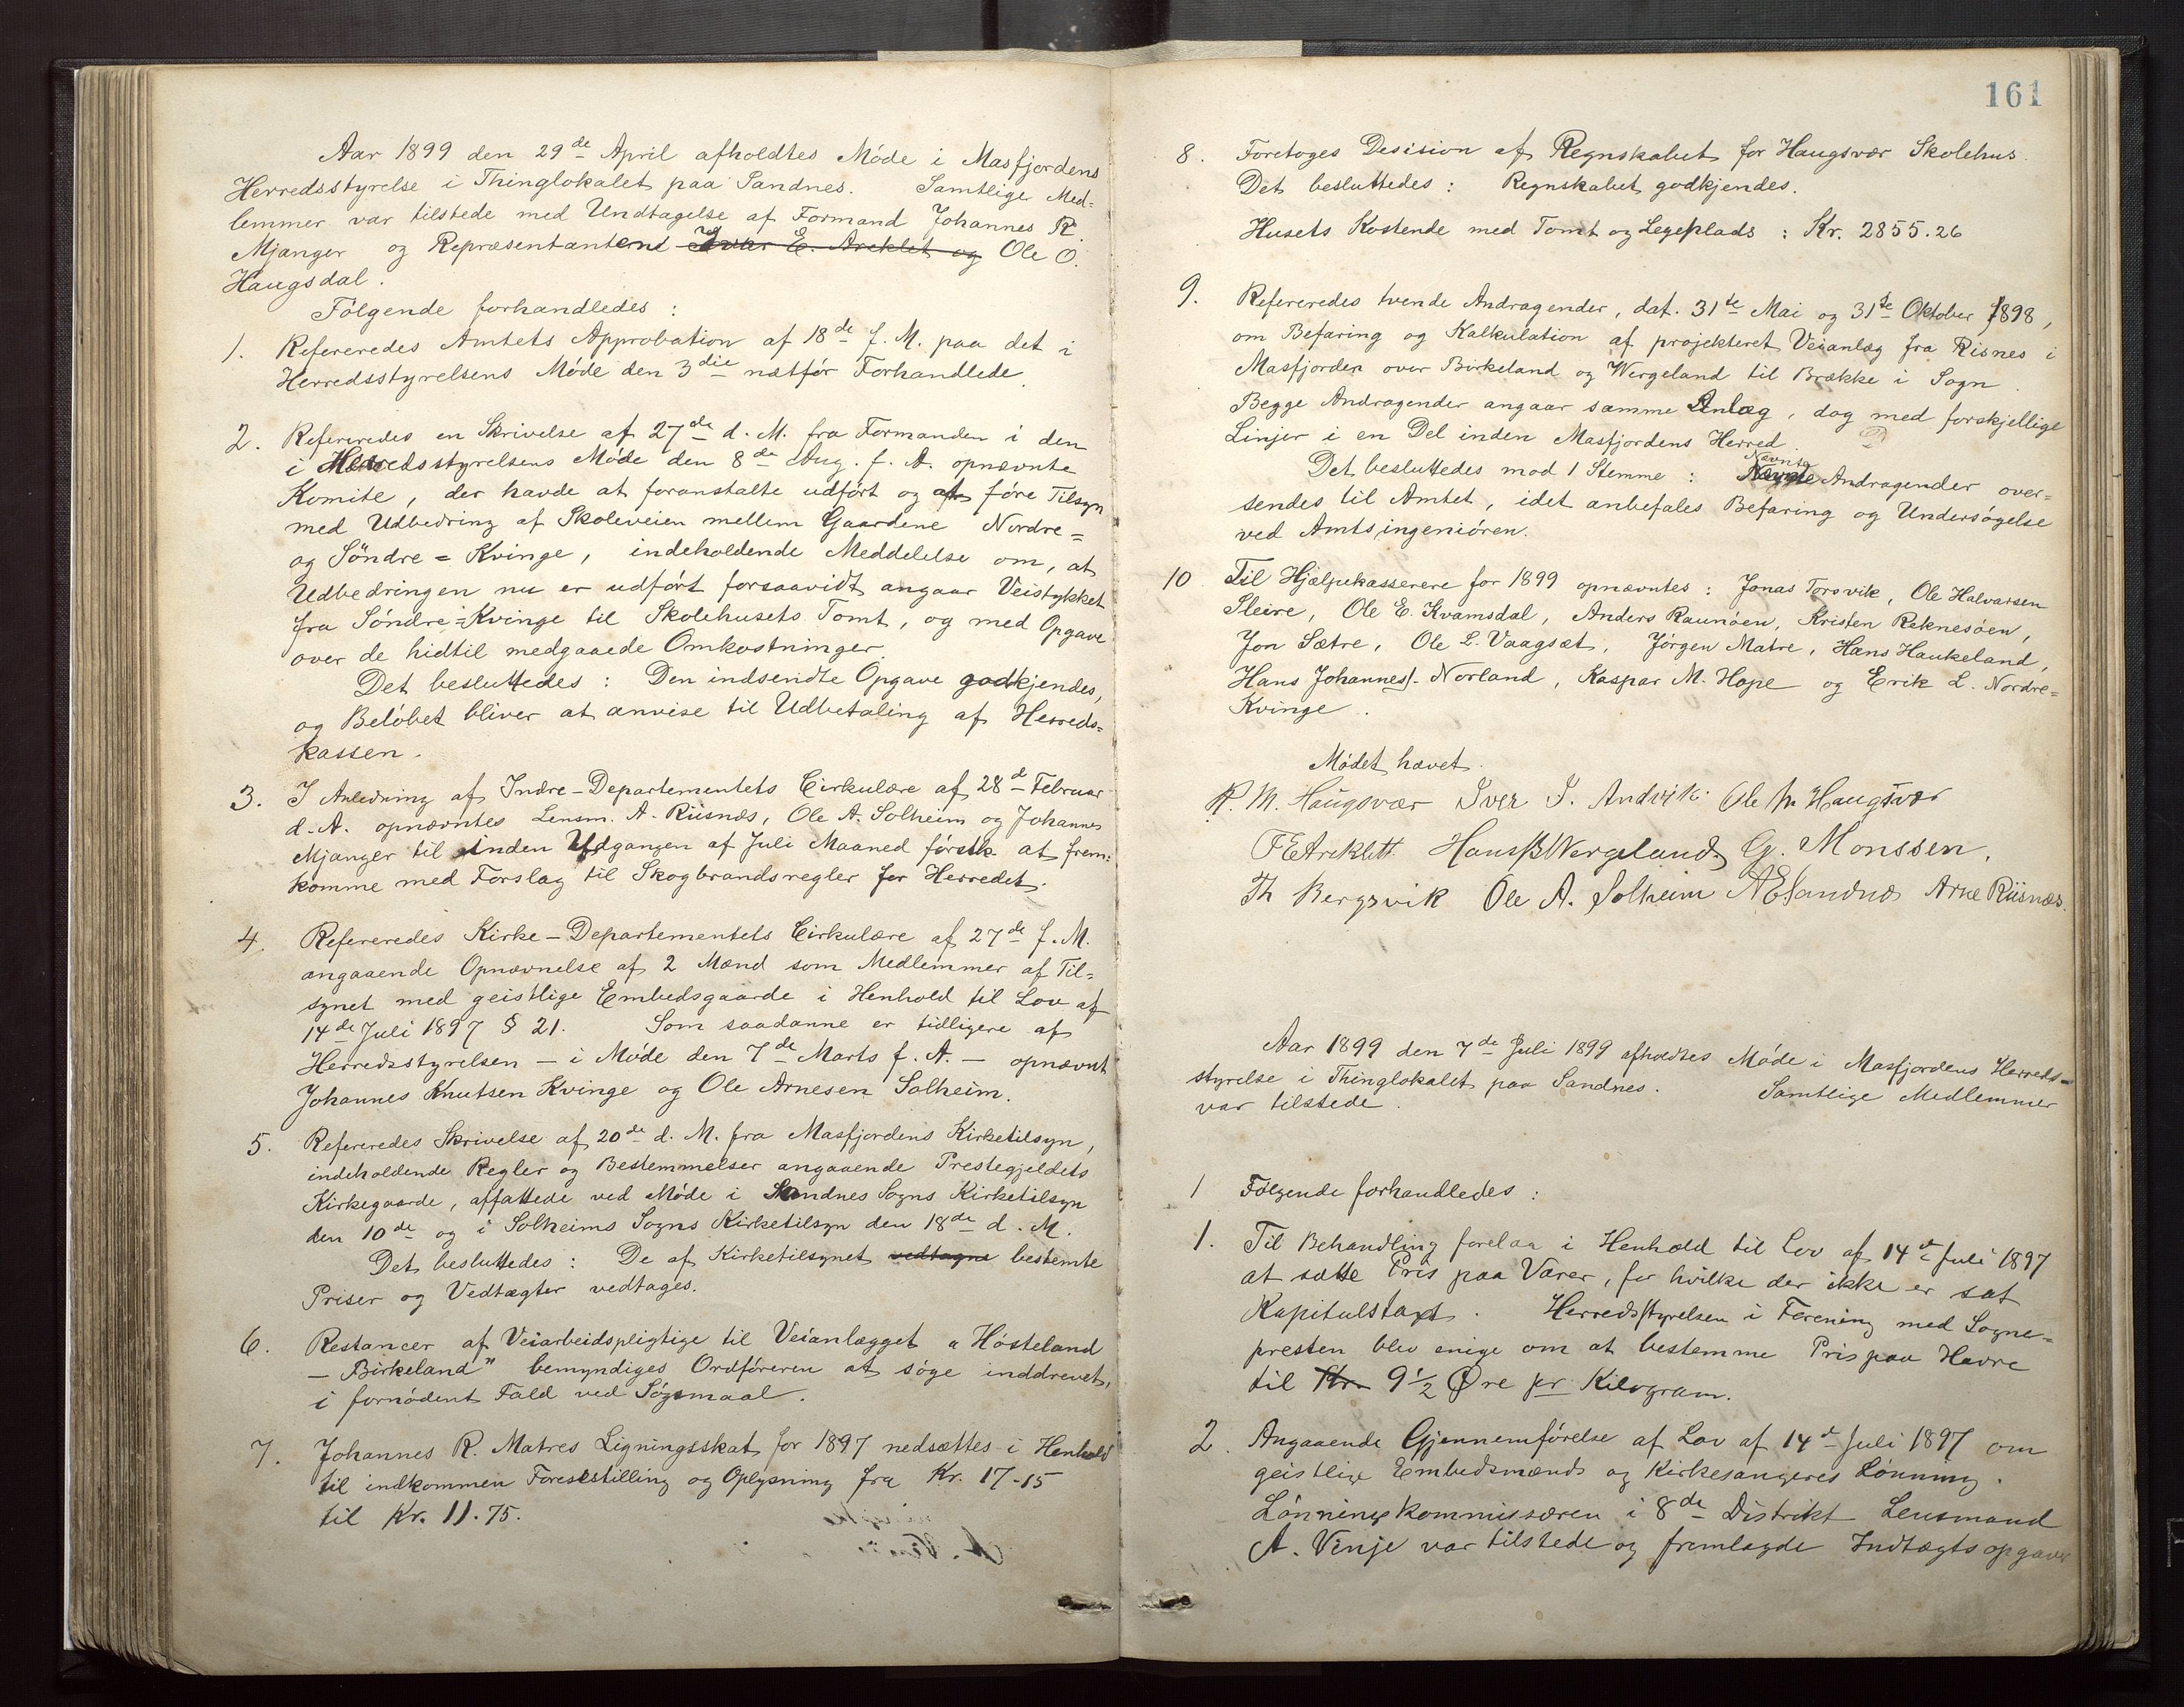 Aar 1899 den 29de April afholdtes Møde i Masfjordens
Herredsstyrelse i Thinglokalet paa Sandnes. Samtlige Med-
lemmer var tilstede med Undtagelse af Formand Johannes R.
Mjanger og Repræsentanterne Ivar E. Areklet og Ole O.
Haugsdal.
Følgende forhandledes :
1. Refereredes Amtets Approbation af 18de f. M. paa det i
Herredsstyrelsens Møde den 3die nætfør Forhandlede.
2. Refereredes en Skrivelse af 27de d. M. fra Formanden i den
i Herredsstyrelsens Møde den 8de Aug. f. A. opnævnte
Komite, der havde at foranstalte udført og at føre Tilsyn
med Udbedring af Skoleveien mellem Gaardene Nordre=
og Søndre=Kvinge, indeholdende Meddelelse om, at
Udbedringen nu er udført forsaavidt angaar Veistykket
fra Søndre=Kvinge til Skolehusets Tomt, og med Opgave
over de hidtil medgaaede Omkostninger.
Det besluttedes : Den indsendte Opgave godkjendes,
og Beløbet bliver at anvise til Udbetaling af Herreds=
kassen.
3. I Anledning af Indre-Departementets Cirkulære af 28d Februar
d. A. opnævntes Lensm. A. Riisnæs, Ole A. Solheim og Johannes
Mjanger til inden Udgangen af Juli Maaned førstk. at frem=
komme med Forslag til Skogbrandsregler for Herredet.
4. Refereredes Kirke-Departementets Cirkulære af 27de f. M.
angaaende Opnævnelse af 2 Mænd som Medlemmer af Til=
synet med geistlige Embedsgaarde i Henhold til Lov af
14de Juli 1897 § 21. Som saadanne er tidligere af
Herredsstyrelsen - i Møde den 7de Marts f. A. - opnævnt
Johannes Knutsen Kvinge og Ole Arnesen Solheim.
5. Refereredes Skrivelse af 20de d. M. fra Masfjordens Kirketilsyn,
indeholdende Regler og Bestemmelser angaaende Prestegjeldets
Kirkegaarde, affattede ved Møde i Sandnes Sogns Kirketilsyn
den 10de og i Solheims Sogns Kirketilsyn den 18de d. M.
Det besluttedes : De af Kirketilsynet vedtagne bestemte
Priser og Vedtægter vedtages.
6. Restancer af Veiarbeidspligtige til Veianlægget "Høsteland
- Birkeland" bemyndiges Ordføreren at søge inddrevet,
i fornødent Fald ved Søgsmaal.
7. Johannes R. Matres Ligningsskat for 1897 nedsættes i Henhold
til indkommen Forestilling og Oplysning fra Kr. 17-15
til Kr. 11.75.
161
8. Foretoges Desision af Regnskabet for Haugsvær Skolehus.
Det besluttedes : Regnskabet godkjendes.
Husets Kostende med Tomt og Legeplads : Kr. 2855.26
9. Refereredes tvende Andragender, dat. 31te Mai og 31te Oktober 1898,
om Befaring og Kalkulation af projekteret Veianlæg fra Risnes i
Masfjorden over Birkeland og Wergeland til Brække i Sogn.
Begge Andragender angaar samme Anlæg, dog med forskjellige
Linjer i en Del inden Masfjordens Herred.
Det besluttedes mod 1 Stemme : Nævnte Andragender over=
sendes til Amtet, idet anbefales Befaring og Undersøgelse
ved Amtsingeniøren.
10 Til Hjælpekasserere for 1899 opnævntes : Jonas Torsvik, Ole Halvorsen
Sleire, Ole E. Kvamsdal, Anders Raunøen, Kristen Reknesøen,
Jon Sætre, Ole L. Vaagsæt, Jørgen Matre, Hans Haukeland,
Hans Johannes. Norland, Kaspar M. Hope og Erik L. Nordre=
Kvinge.
Mødet hævet.
R. M. Haugsvær Iver I. Andvik Ole M Haugsvær
I E Areklett Hans B Wergeland G. Monssen.
Th Bergsvik Ole A. Solheim A E Sandnæs Arne Riisnæs.
Aar 1899 den 7de Juli 1899 afholdtes Møde i Masfjordens Herreds=
styrelse i Thinglokalet paa Sandnes. Samtlige Medlemmer
var tilstede.
1 Følgende forhandledes :
1. Til Behandling forelaa i Henhold til Lov af 14de Juli 1897
at sætte Pris paa Varer, for hvilke der ikke er sat
Kapitulstaxt. Herredsstyrelsen i Forening med Sogne=
presten blev enige om at bestemme Pris paa Havre
til Kr. 9½ Øre pr Kilogram.
2. Angaaende Gjennemførelse af Lov af 14de Juli 1897 om
geistlige Embedsmænds og Kirkesangeres Lønning.
Lønningskommissæren i 8de Distrikt Lensmand
A. Vinje var tilstede og fremlagde Indtægtsopgaver